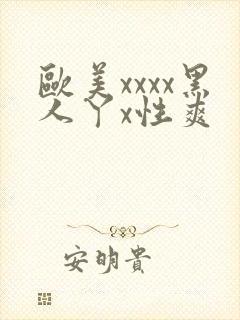 歐美xxxx黑
人丫x性爽
安明貴